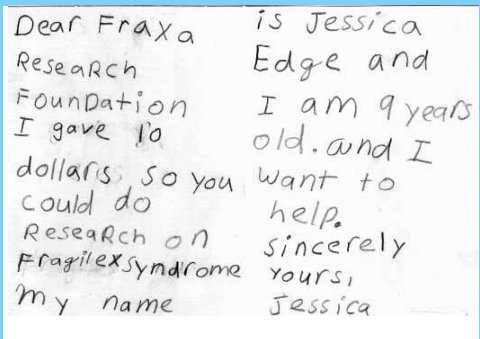 Dear Fraxa
ReseaRch
FounDation
I gave 10
dollars so you
could do
ReseaRch on
Fragilexsyndrome
my name
is Jessica
Edge and
I am 9 years
old. and I
want to
help.
sincerely
yours,
Jessica